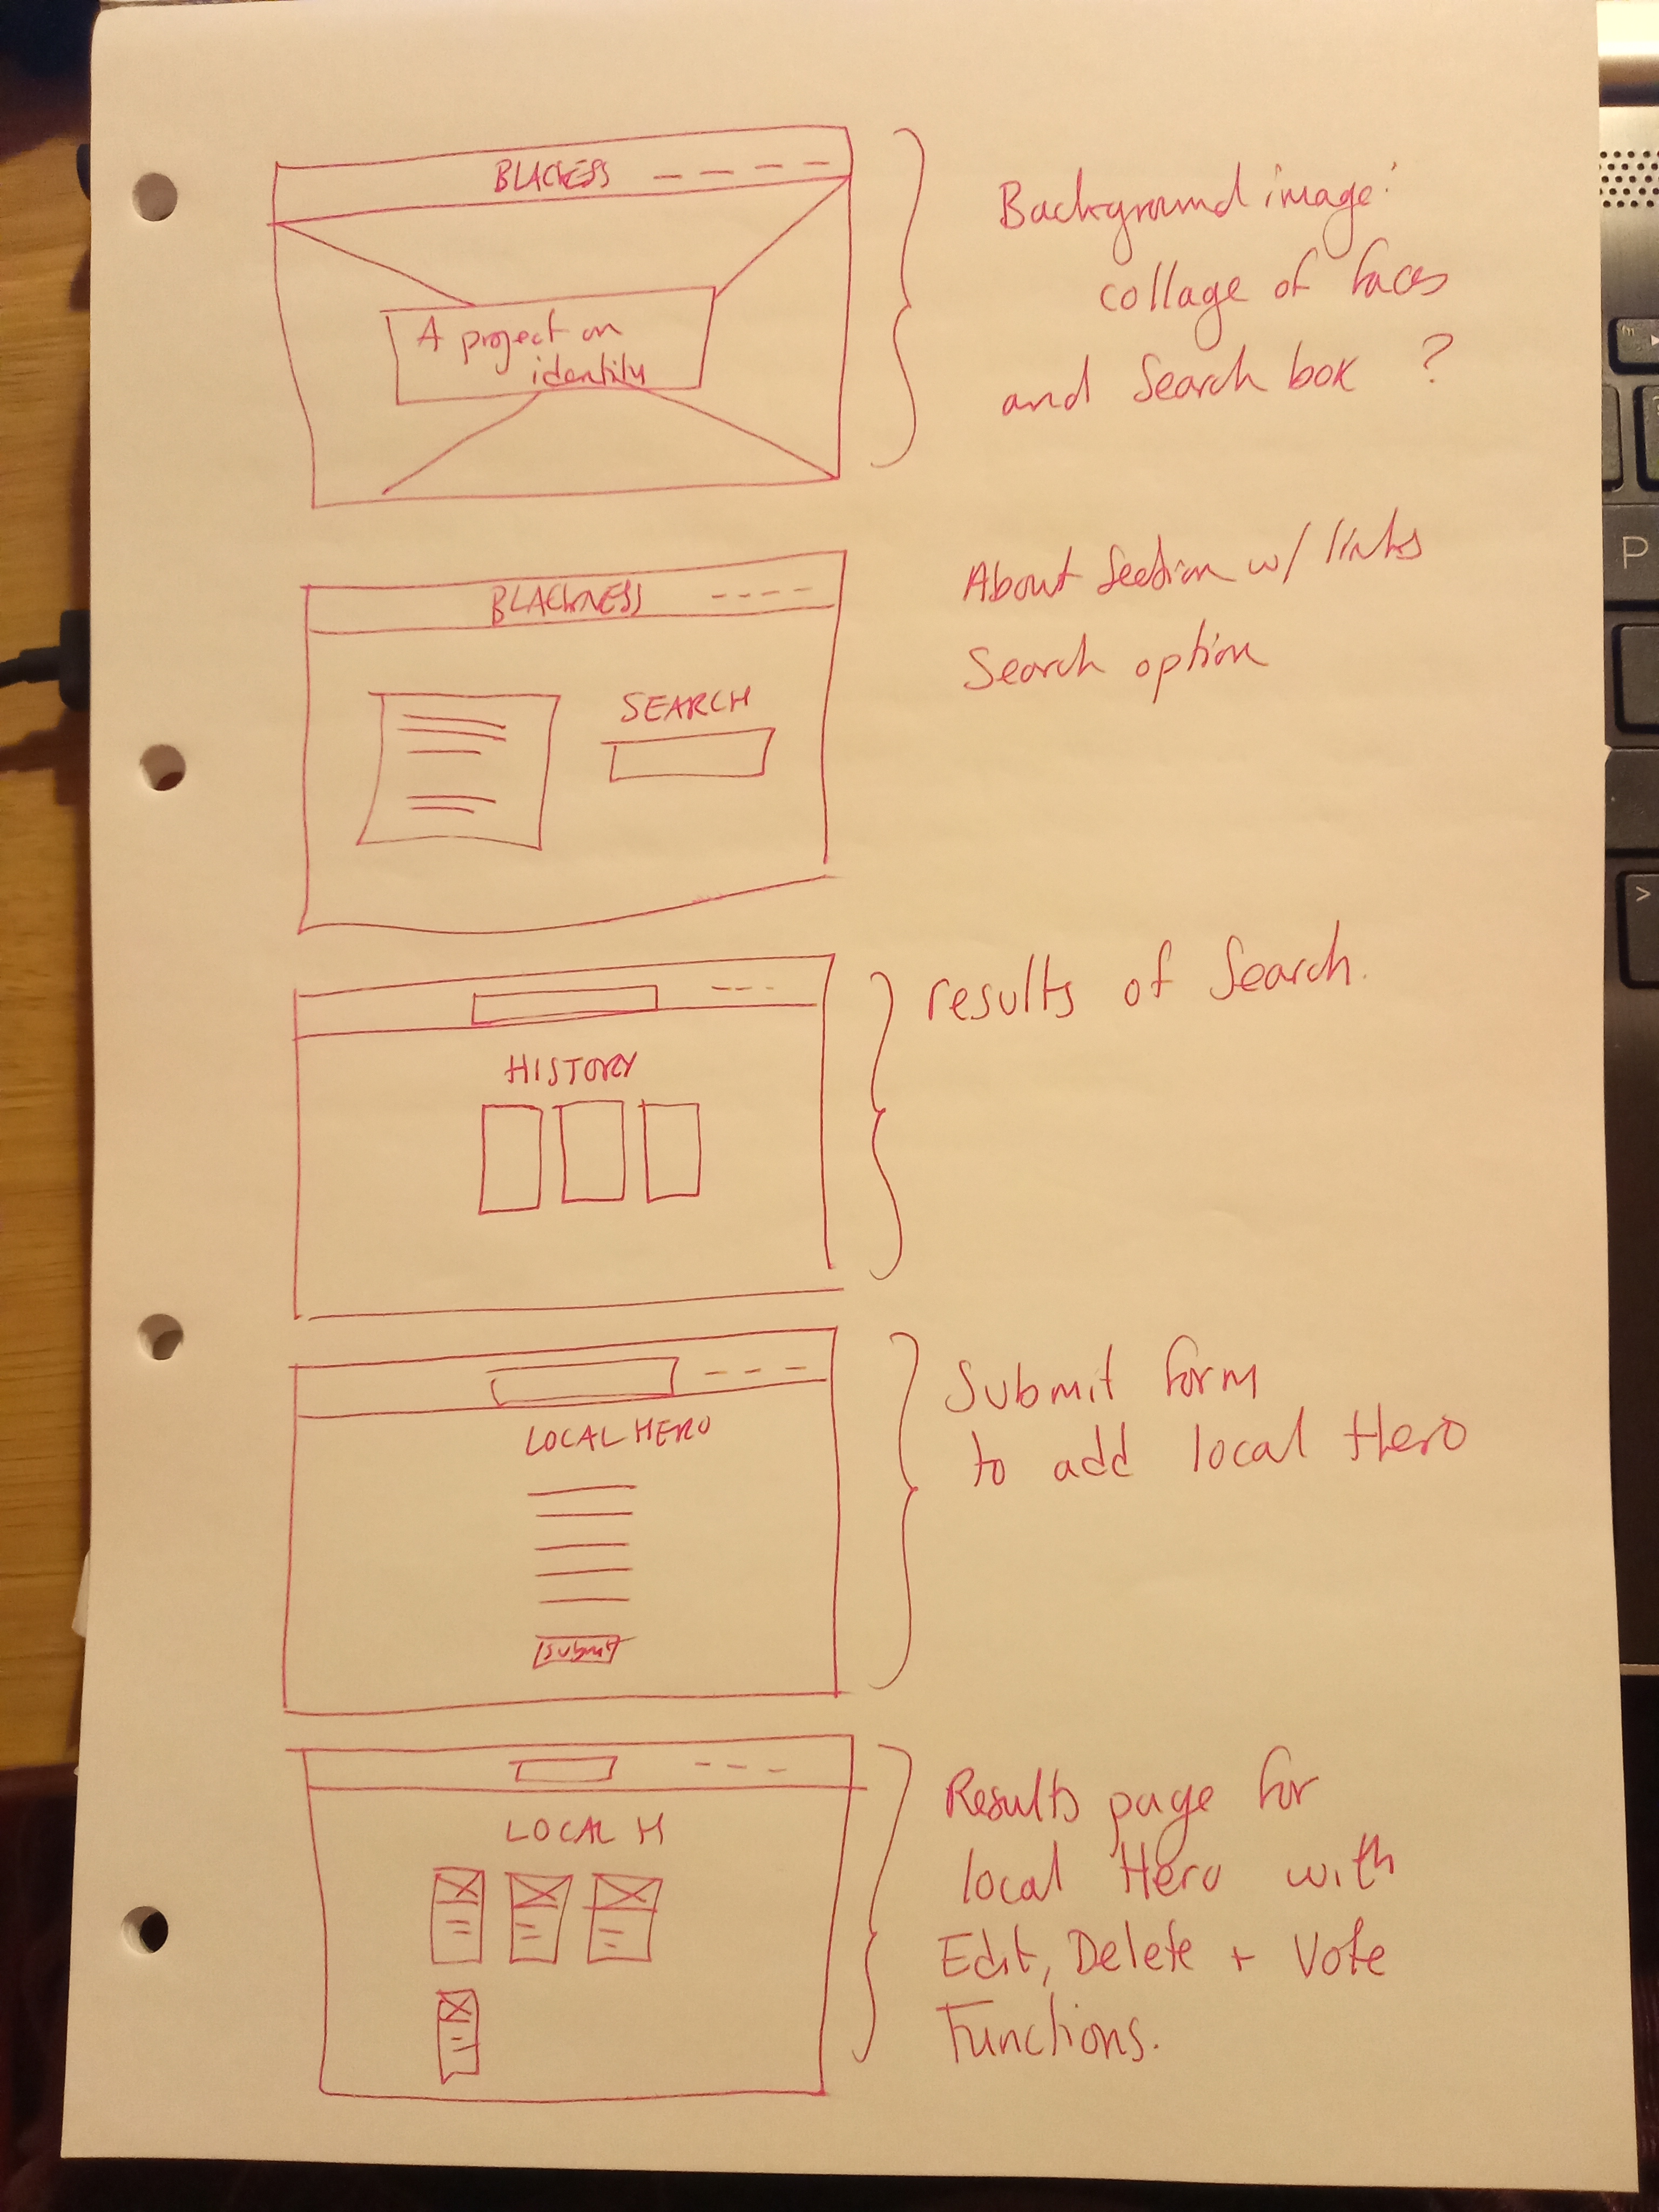 BLACKESS
A project on
identity
Background image:
collage of faces
and Search box ?
BLACKNESS
SEARCH
About Section w/ links
Search option
HISTORY
results of Search.
LOCAL HERO
Submit
Submit form
to add local Hero
LOCAL H
Results page for
local Hero with
Edit, Delete + Vote
Functions.
P
>